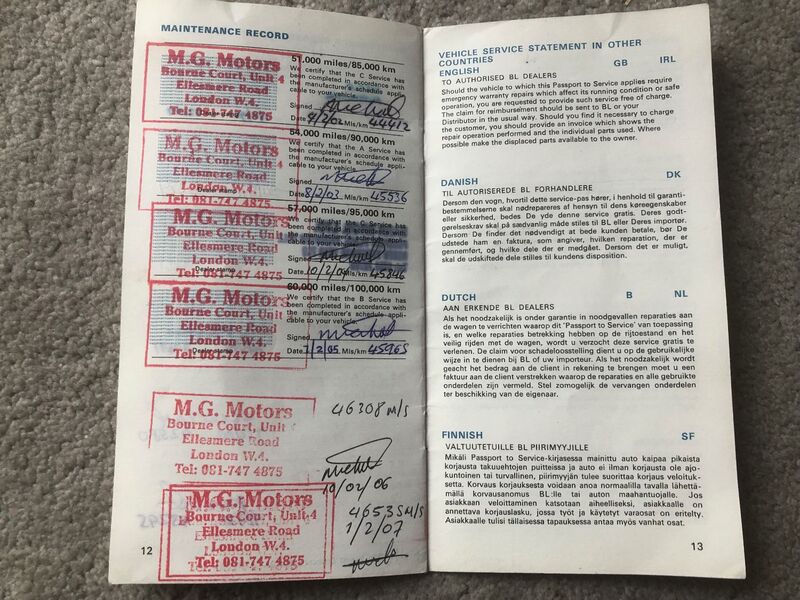 MAINTENANCE RECORD
M.G. Motors
Bourne Court, Unit 4
Ellesmere Road
London W.4.
Tel: 081-747 4875
51,000 miles/85,000 km
We certify that the C Service has
been completed in accordance with
the manufacturer's schedule appli-
cable to your vehicle.
Signed
Date 9/2/02 Mls/km 44412
M.G. Motors
Bourne Court, Unit 4
Ellesmere Road
London W.4.
Dealer stamp
Tel: 081-747 4875
54,000 miles/90,000 km
We certify that the A Service has
been completed in accordance with
the manufacturer's schedule appli-
cable to your vehicle.
Signed
Date 8/2/03 Mls/km 45536
M.G. Motors
Bourne Court, Unit 4
Ellesmere Road
London W.4.
Dealer stamp
Tel: 081-747 4875
57,000 miles/95,000 km
We certify that the C Service has
been completed in accordance with
the manufacturer's schedule appli-
cable to your vehicle.
Signed
Date 10/2/04 Mls/km 45846
M.G. Motors
Bourne Court, Unit 4
Ellesmere Road
London W.4.
Tel: 081-747 4875
60,000 miles/100,000 km
We certify that the B Service has
been completed in accordance with
the manufacturer's schedule appli-
cable to your vehicle.
Signed
Date /2/05 Mls/km 45965
M.G. Motors
Bourne Court, Unit
Ellesmere Road
London W.4.
Tel: 081-747 4875
46308 M/S
10/02/06
M.G. Motors
Bourne Court, Unit 4
Ellesmere Road
London W.4.
Tel: 081-747 4875
46535 M/S
1/2/07
12
VEHICLE SERVICE STATEMENT IN OTHER
COUNTRIES
ENGLISH GB IRL
TO AUTHORISED BL DEALERS
Should the vehicle to which this Passport to Service applies require
emergency warranty repairs which affect its running condition or safe
operation, you are requested to provide such service free of charge.
The claim for reimbursement should be sent to BL or your
Distributor in the usual way. Should you find it necessary to charge
the customer, you should provide an invoice which shows the
repair operation performed and the individual parts used. Where
possible make the displaced parts available to the owner.
DANISH DK
TIL AUTORISEREDE BL FORHANDLERE
Dersom den vogn, hvortil dette service-pas hører, i henhold til garanti-
bestemmelserne skal nødrepareres af hensyn til dens køreegenskaber
eller sikkerhed, bedes De yde denne service gratis. Deres godt-
gørelseskrav skal på sædvanlig måde stiles til BL eller Deres importør.
Dersom De finder det nødvendigt at bede kunden betale, bør De
udstede ham en faktura, som angiver, hvilken reparation, der er
gennemført, og hvilke dele der er medgået. Dersom det er muligt,
skal de udskiftede dele stilles til kundens disposition.
DUTCH B NL
AAN ERKENDE BL DEALERS
Als het noodzakelijk is onder garantie in noodgevallen reparaties aan
de wagen te verrichten waarop dit 'Passport to Service' van toepassing
is, en welke reparaties betrekking hebben op de rijtoestand en het
veilig rijden met de wagen, wordt u verzocht deze service gratis te
verlenen. De claim voor schadeloosstelling dient u op de gebruikelijke
wijze in te dienen bij BL of uw importeur. Als het noodzakelijk wordt
geacht het bedrag aan de client in rekening te brengen moet u een
faktuur aan de client verstrekken waarop de reparaties en alle gebruikte
onderdelen zijn vermeld. Stel zomogelijk de vervangen onderdelen
ter beschikking van de eigenaar.
FINNISH SF
VALTUUTETUILLE BL PIIRIMYYJILLE
Mikäli Passport to Service-kirjasessa mainittu auto kaipaa pikaista
korjausta takuuehtojen puitteissa ja auto ei ilman korjausta ole ajo-
kuntoinen tai turvallinen, piirimyyjän tulee suorittaa korjaus veloituk-
setta. Korvaus korjauksesta voidaan anoa normaalilla tavalla lähettä-
mällä korvausanomus BL:lle tai auton maahantuojalle. Jos
asiakkaan veloittaminen katsotaan aiheelliseksi, asiakkaalle on
annettava korjauslasku, jossa työ ja käytetyt varaosat on eritelty.
Asiakkaalle tulisi tällaisessa tapauksessa antaa myös vanhat osat.
13